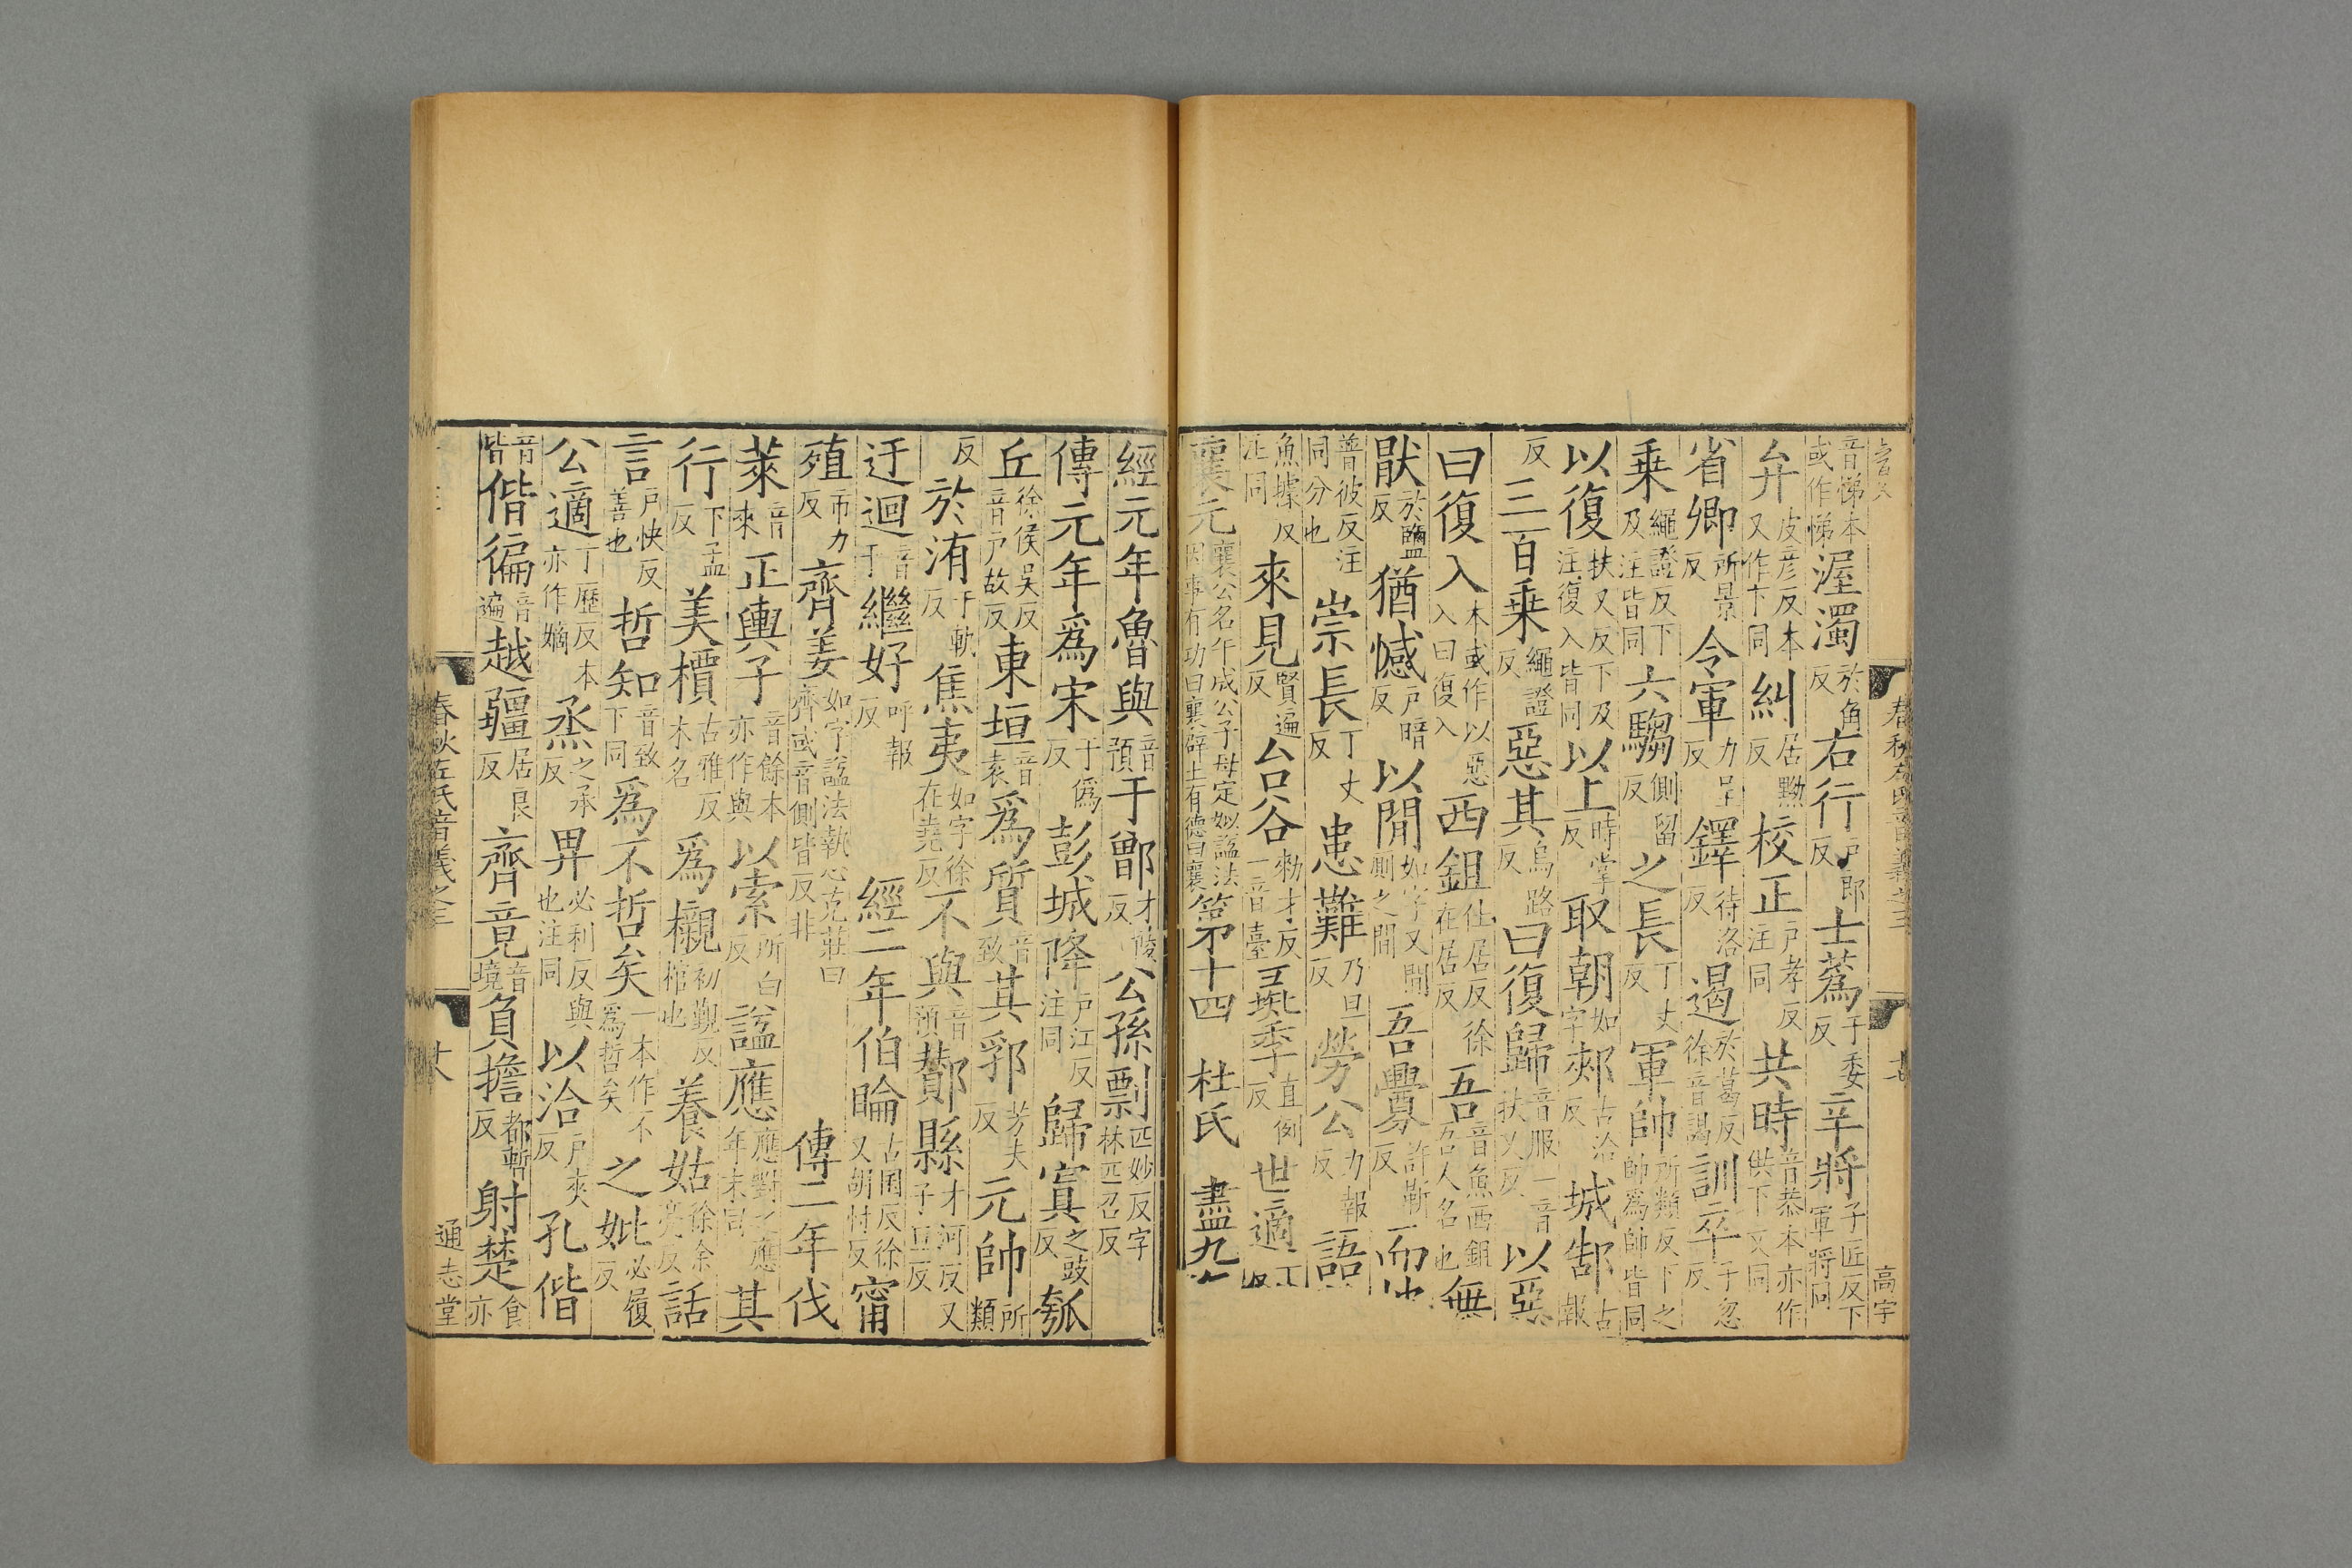 音悌本或作悌渥濁於角反右行戶郎反士蒍于委反辛將子匠反下軍將同
弁皮彥反本又作卞同糾居黝反校正戶孝反注同共時音恭本亦作供下文同
省卿所景反令軍力呈反鐸待洛反遏於葛反徐音謁訓卒子忽反
乘繩證反下及注皆同六騶側留反之長丁丈反軍帥所類反下之帥爲帥皆同
以復扶又反下及注復入皆同以上時掌反取朝如字郟古洽反城郜古報
反三百乘繩證反惡其烏路反曰復歸音服一音扶又反以惡
曰復入本或作以惡入曰復入西鉏仕居反徐在居反吾音魚西鉏吾人名也無
厭於鹽反猶憾戶暗反以閒如字又閒廁之閒吾舋許靳反而
普彼反注同分也崇長丁丈反患難乃旦反勞公力報反語
魚據反注同來見賢遍反台谷勑才反一音臺直例反世適丁
襄元襄公名午成公子母定姒謚法因事有功曰襄辟土有德曰襄第十四 杜氏 盡九
經元年魯與音預于鄫才陵反公孫剽匹妙反字林匹召反
傳元年爲宋于僞反彭城降戶江反注同歸寘之豉反瓠
丘徐侯吳反音戶故反東垣音袁爲質音致其郛芳夫反元帥所類
反於洧于軌反焦夷如字徐在堯反不與音預酇縣才河反又子豆反又
迂迴音于繼好呼報反經二年伯睔古囷反徐又胡忖反甯
殖市力反齊姜如字謚法執心克莊曰齊或音側皆反非傳二年伐
萊音來正輿子音餘本亦作與以索所白反謚應應對之應年末同其
行下孟反美檟古雅反木名爲櫬初覲反棺也養姑徐余亮反話
言戶快反善也哲知音致下同爲不哲矣一本作不爲哲矣之妣必履反
公適丁歷反本亦作嫡烝之承反畀必利反與也注同以洽戶夾反孔偕
音皆偕徧音遍越疆居良反齊竟音境負擔都暫反射楚食亦
春秋左氏音義之三
通志堂